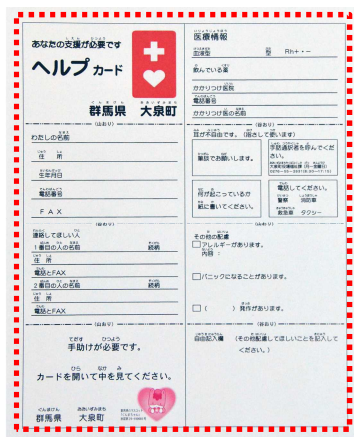 あなたの支援が必要です
ヘルプカード
群馬県 大泉町
(山おり)
わたしの名前
住所
生年月日
電話番号
ＦＡＸ
連絡してほしい人
1番目の人の名前 続柄
住所
電話とFAX
2番目の人の名前 続柄
住所
電話とFAX
(山おり)
手助けが必要です。
カードを開いて中を見てください。
群馬県 大泉町
医療情報
血液型 型 Rh＋・－
飲んでいる薬
かかりつけ医院
電話番号
かかりつけ医の名前
(谷おり)
耳が不自由です。(指さして使います)
筆談でお願いします。
手話通訳者を呼んでください。
何が起こっているか
紙に書いてください。
電話してください。
警察 消防車
救急車 タクシー
その他の配慮
□アレルギーがあります。
内容：
□パニックになることがあります。
□( )発作があります。
(谷おり)
自由記入欄 (その他配慮してほしいことを記入してください。)